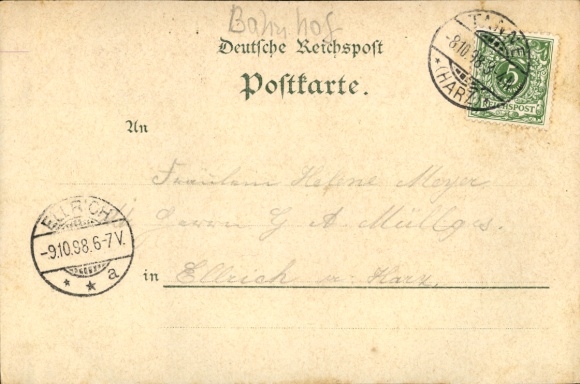 Bahnhof
Deutsche Reichspost
Postkarte.
TANNE
-8.10.98
* (HARZ)
5
REICHSPOST
An
Fräulein Helene Meyer
Herrn G A Müllges.
in Ellrich a. Harz.
ELLRICH
-9.10.98.6-7V.
* * a